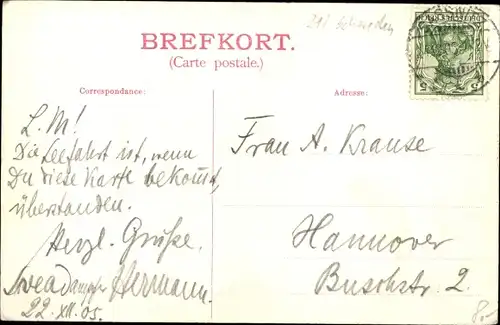 BREFKORT.
(Carte postale.)
Correspondance:
Adresse:
L. M!
Die Seefahrt ist, wenn
Du diese Karte bekomst,
überstanden.
Herzl. Grüße.
Hermann.
22. XII. 05.
Frau A. Krause
Hannover
Buschstr. 2.
5 5